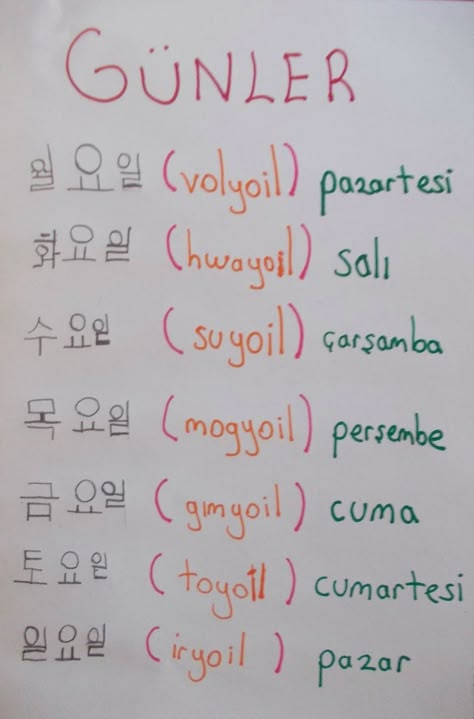 GÜNLER
월요일 (volyoil) pazartesi
화요일 (hwayoil) salı
수요일 (suyoil) çarşamba
목요일 (mogyoil) perşembe
금요일 (gımyoil) cuma
토요일 (toyoil) cumartesi
일요일 (iryoil) pazar